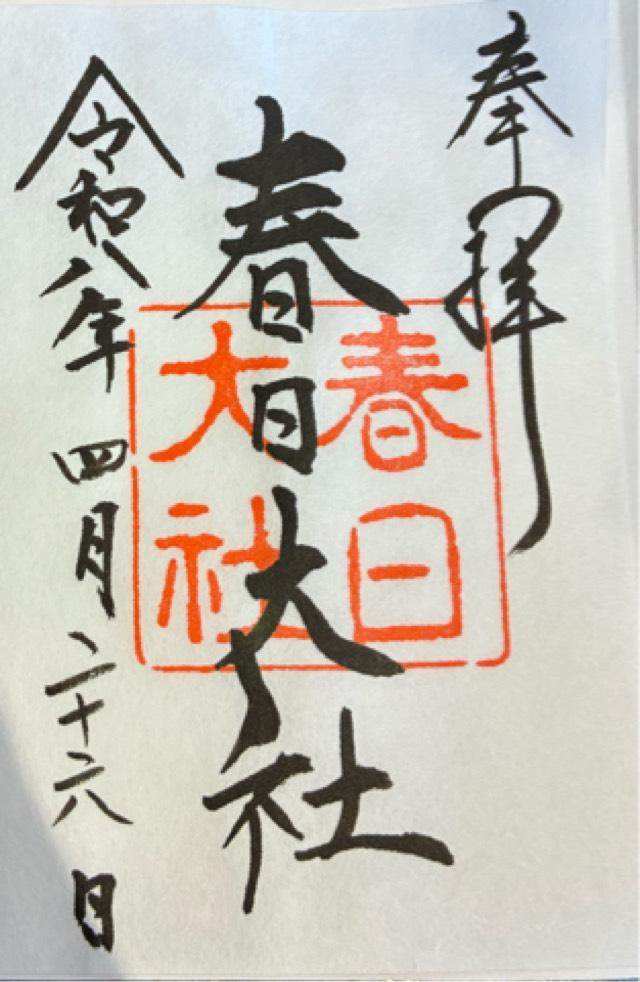 奉拝
春日大社
春日
大社
令和八年四月二十六日